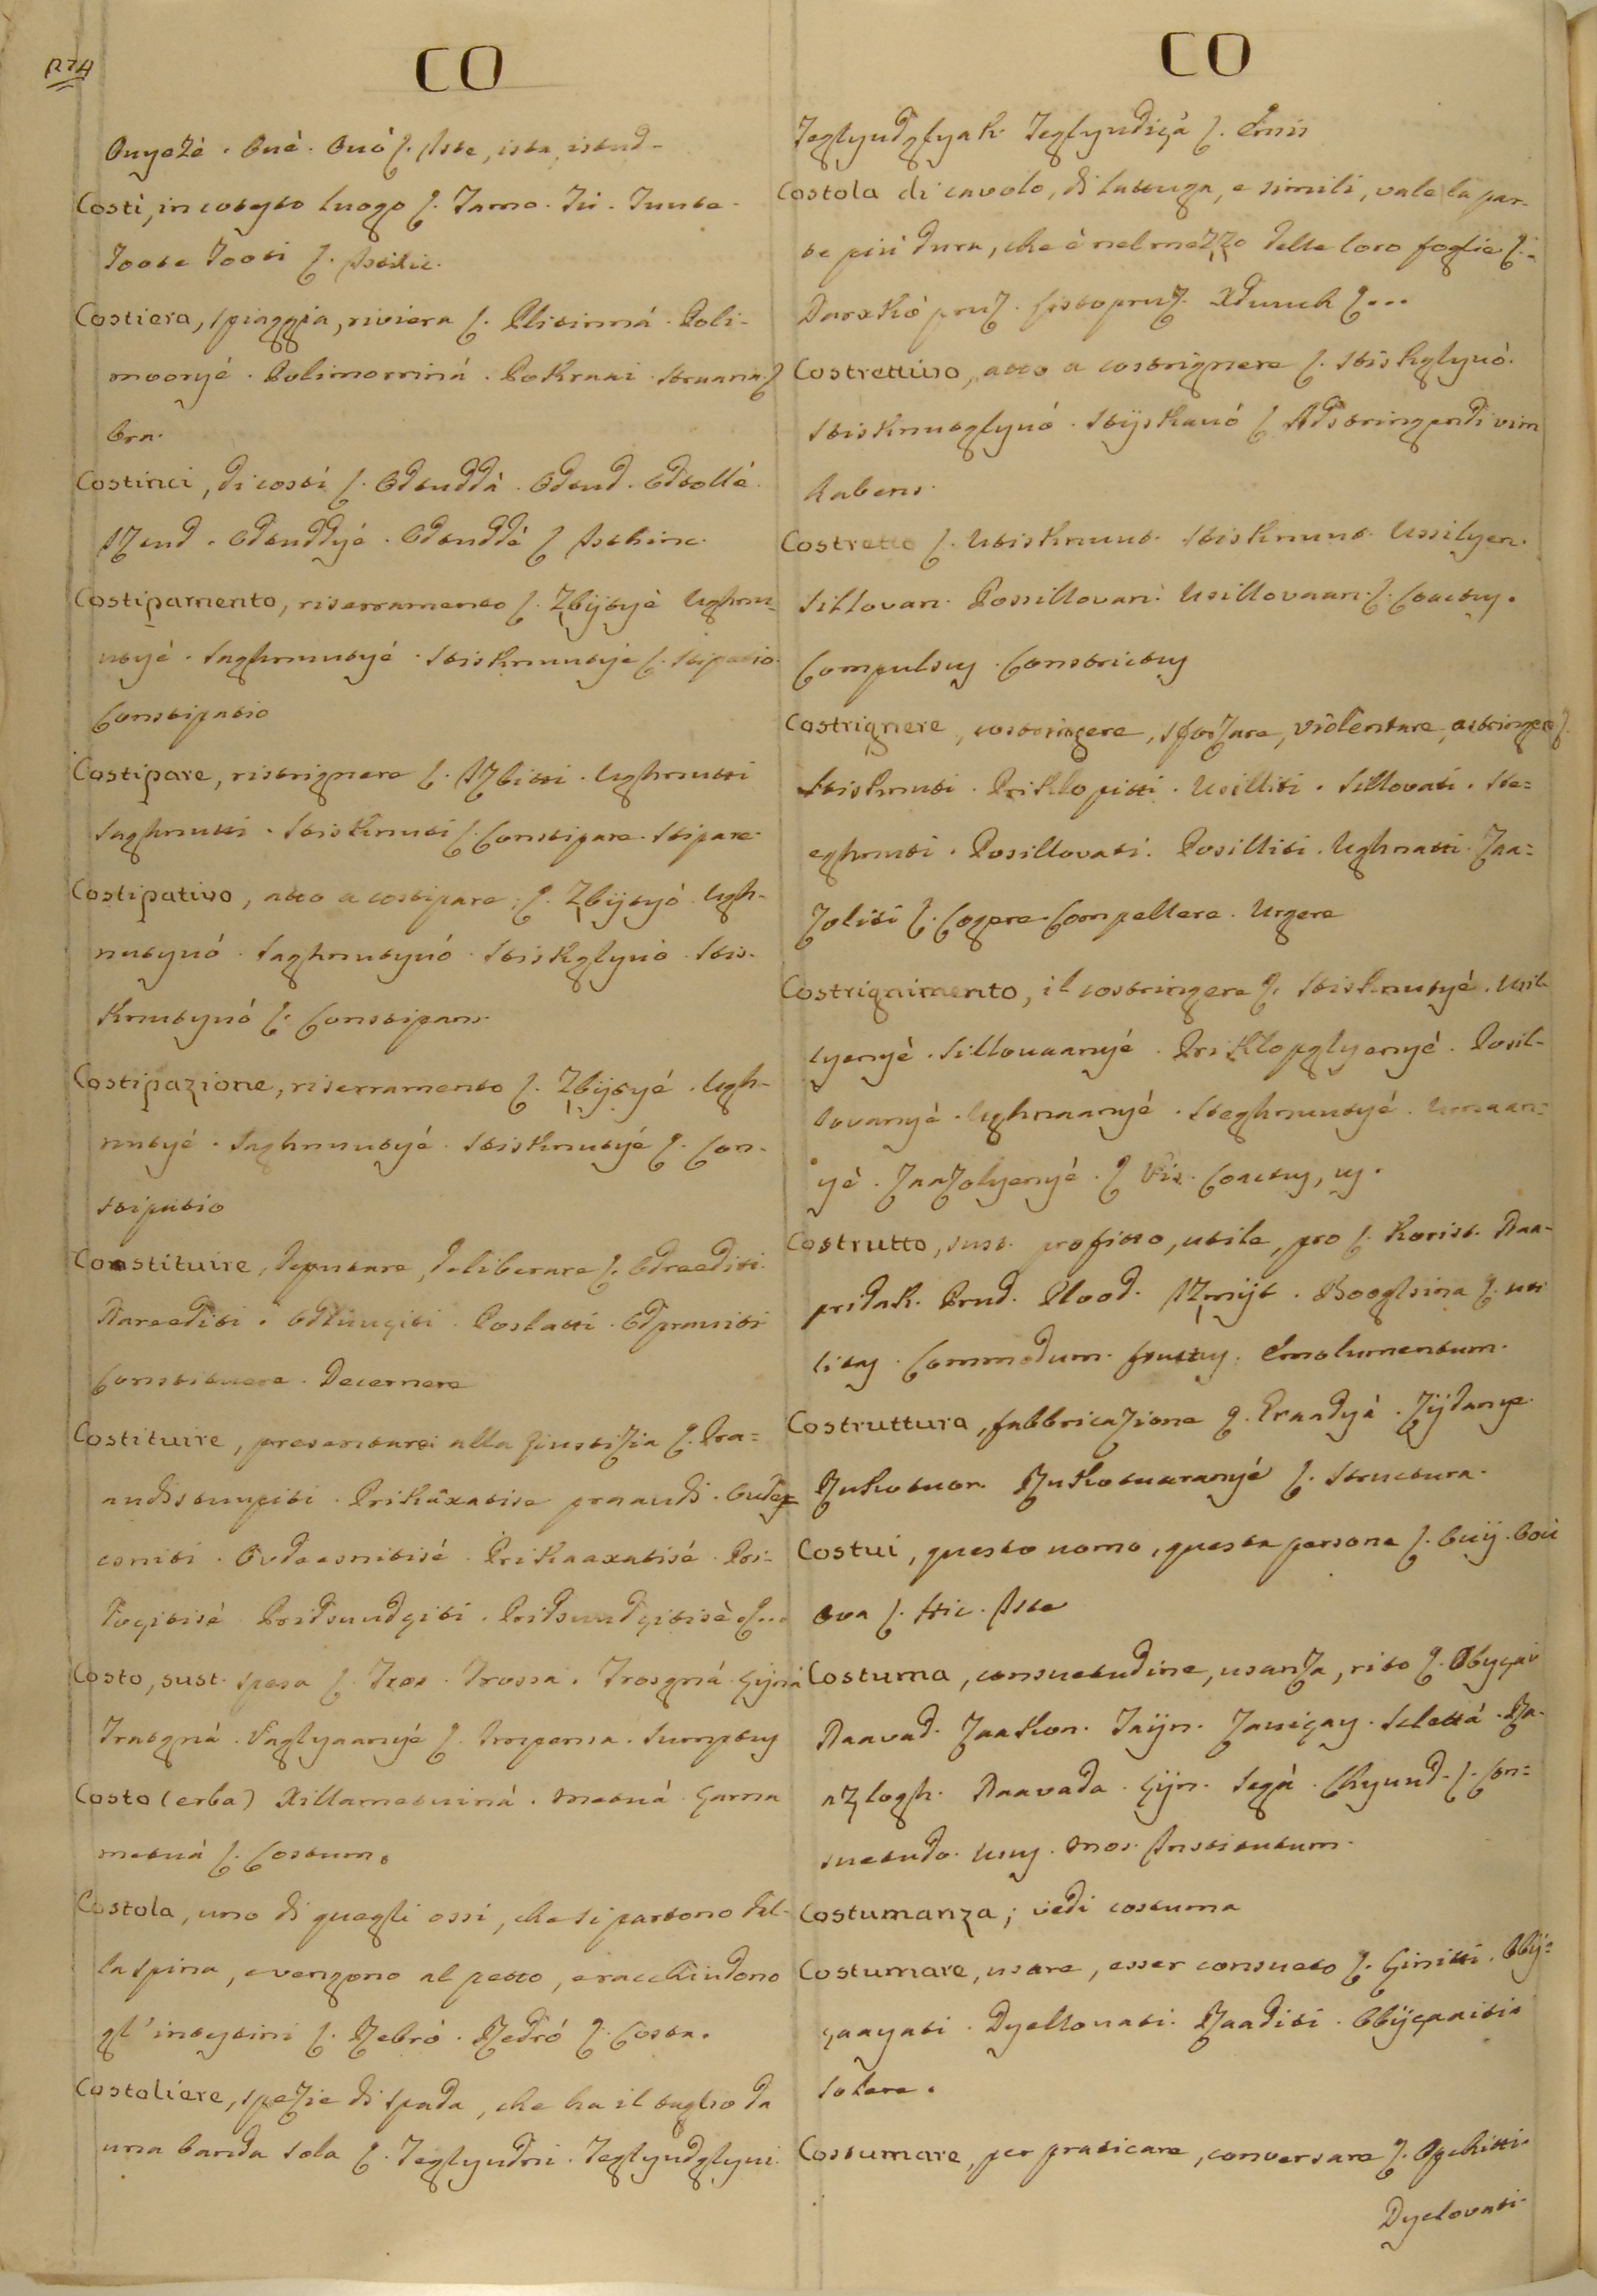 1274
CO
Onyezè. Onè. Onò ſ. Iste, ista, istud.
Costì, in cotesto luogo ſ. Tamo. Tù. Tuute.
Toote Tooti ſ. Istic.
Costiera, spiaggia, riviera ſ. Plitinná. Poli-
mooryé. Polimorriná. Pokraai. Straana. ſ
Ora.
Costinci, di costì ſ. Odtuddà. Odtud. Odtollè.
Iztud. Odtuddyé. Odtuddè ſ Isthinc.
Costipamento, riserramento ſ. Zbijtyè Ughnu-
utyé. Saghnuutyé. Stisknuutyé ſ. Stipatio.
Constipatio
Costipare, ristrignere ſ. Izbitti. Ughnutti
Saghnutti. Stisknuti ſ. Constipare. Stipare.
Costipativo, atto a costipare ſ. Zbijtyó. Ugh-
nutynó. Saghnutynó. Stiskglynò. Stis-
knutynó ſ. Constipans.
Costipazione, riserramento ſ. Zbijtyé. Ugh-
nutyé. Saghnuutyé. Stisknutyé ſ. Con-
stipatio
Constituire, deputare, deliberare ſ. Odreediti.
Nareediti. Poslatti. Odpraviti
Constituere. Decernere
Costituire, presentarsi alla giustizia ſ. Pra-
Costo, sust. spesa ſ. Tros. Trossa. Trosgná
ſ. Impensa. Sumptus
Costo (erba) Xillametviná. Metvá
metvá ſ. Costum.
Costola, uno di quegli ossi, che si partono dal-
la spina, e vengono al petto, e racchiudono
gl'intestini ſ. Rebrò. Redró ſ. Costa.
Costoliere, spezie di spada, che ha il taglio da
una banda sola ſ. Teglyudni. Teglyudglyni.
CO
Teglyudglyak. Teglyudiçà ſ. Ensis
Costola di cavolo, di lattuga, e simili, vale la par-
te più dura, che è nel mezzo delle loro foglie ſ.
Costrettivo, atto a costrignere ſ. Stiskglynò.
Stisknutglynó. Stijskavó ſ Adstringendi vim
habens.
Costretto ſ. Utisknuut. Stisknuut. Ussilyen.
Sillovan. Possillovan. Usillovaan. ſ. Coactus.
Compulsus. Constrictus
Costrignere, costringere, sforzare, violentare, astringere ſ.
Stisknuti. Priklopitti. Usilliti. Sillovati. Ste-
eghnuti. Posillovati. Posilliti. Ughnatti. Zaa-
zoliti ſ. Cogere. Compellere. Urgere
Costrignimento, il costringere ſ. Stisknutyé. Usil-
lyenyè. Sillovaanyé. Priklopglyenyé. Posil-
lovanyè. Ughnaanyé. Steghnuutyé.
yè. Zaazolyenyé. ſ Vis. Coactus, us.
Costrutto, sust. profitto, utile, pro ſ. Korist. Naa-
pridak. Prud. Plood. ſ. Uti-
litas. Commodum. Fructus. Emolumentum.
Costruttura, fabbricazione ſ. Graadyá. Zijdanye.
Rukotvor. Rukotvaranyé ſ. Structura.
Costui, questo uomo, questa persona ſ. Ovij. Ovi
Ova ſ. Hic. Iste
Costuma, consuetudine, usanza, rito ſ. Obyçai
Naavad. Zaakon.
Naavada. Çijn. ſ. Con-
suetudo. Usus. Mos. Institutum.
Costumanza; vedi costuma
Costumare, usare, esser consueto ſ. Çinitti. Obij-
çaayati. Dyellovati. Raaditi. Obijçaaiti.
Solere.
Costumare, per praticare, conversare ſ. Opchitti.
Dyelovati.